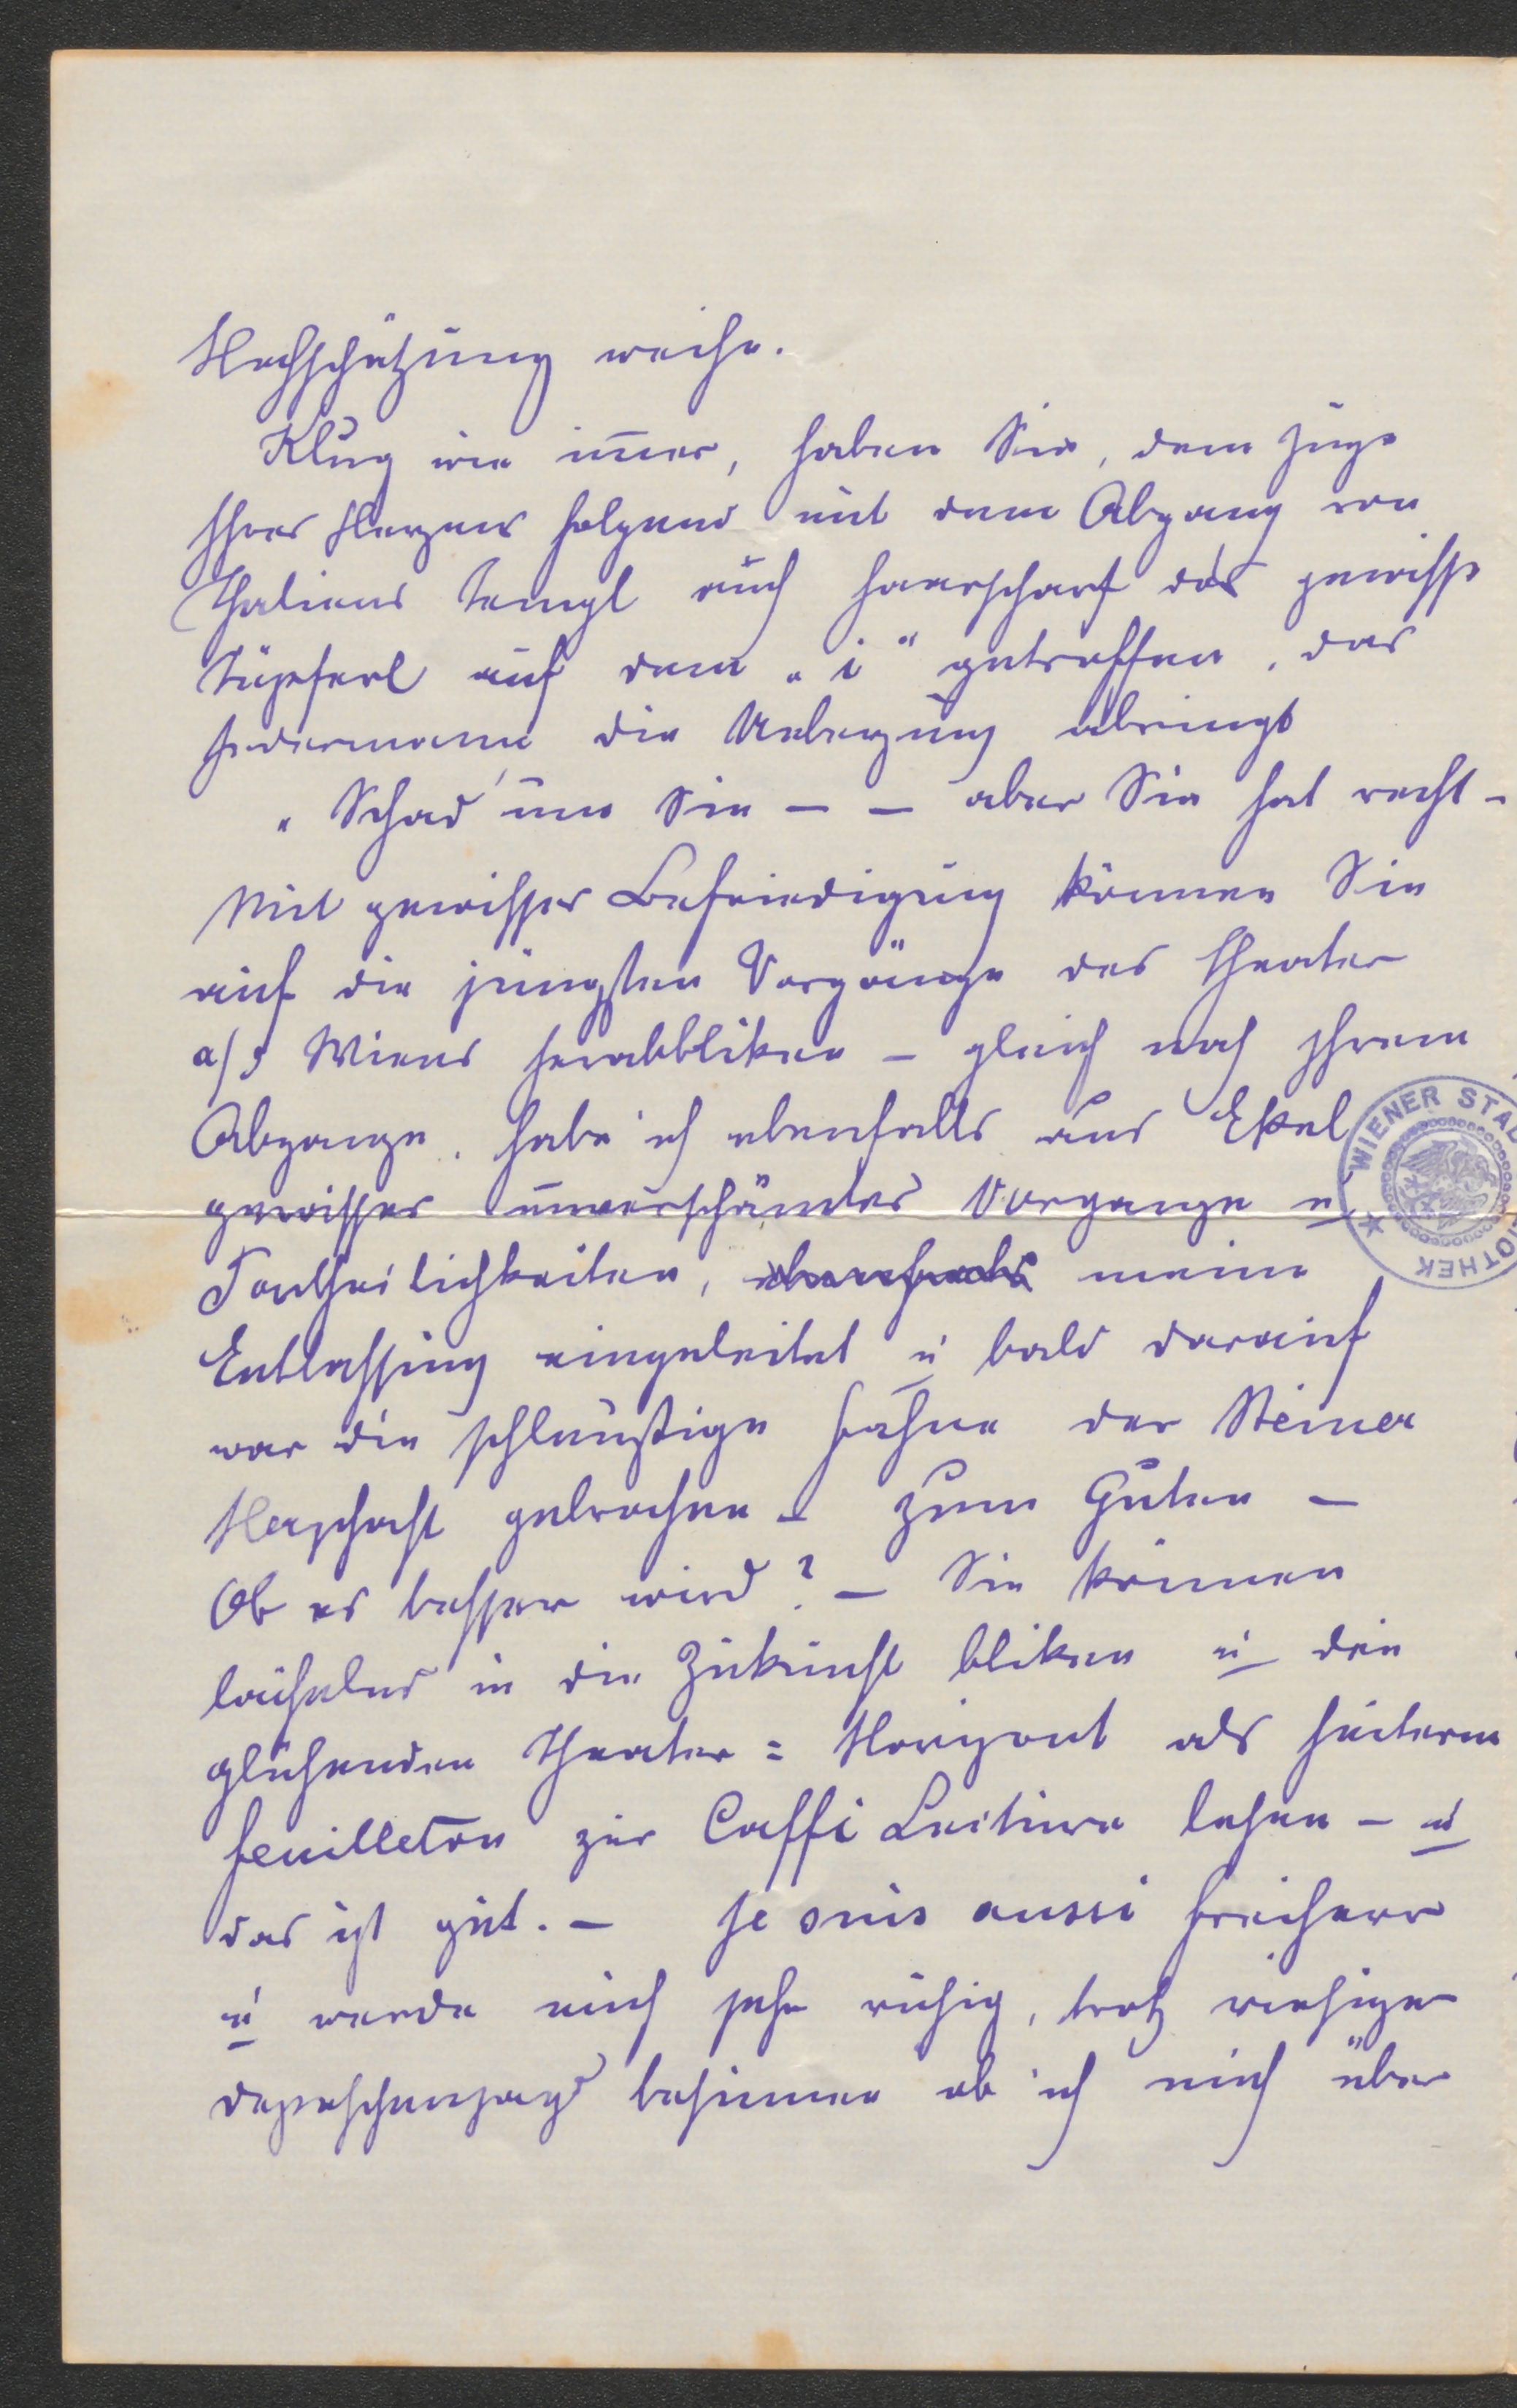 Hochschätzung weihe.
Klug wie im̅er, haben Sie, dem Zuge
Ihres Herzens folgend mit dem Abgang von
Thaliens Templ auch haarscharf das gewisse
Tüpferl auf dem „i“ getroffen, das
Jedermann die Ueberzung abringt
„Schad' um Sie – – aber Sie hat recht –
Mit gewisser Befriedigung können Sie
auf die jüngsten Vorgänge des Theater
a/d Wiens herabbliken – gleich nach Ihrem
Abgange, habe ich ebenfalls aus Ekel
gewisser unverschämter Vorgange u
Partheilichkeiten, meine
Entlassung eingeleitet u bald darauf
war die Fahne der Steiner
Herschaft gebrochen – zum Guten –
Ob es besser wird? – Sie können
lächelnd in die Zukunft bliken u den
glühenden Theater = Horizont als heiterm
Feuilleton zur Caffé Lectüre lesen – u
das ist gut. – Je suis aussi Freiherr
u werde mich sehr ruhig, trotz riesiger
Depeschenjagd besinnen ob ich mich über
WIENER STAD
IOTHEK